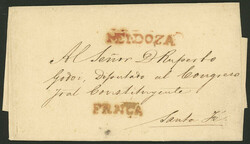 MENDOZA
Al Señor D Ruperto
Godoy, diputado al Congreso
Jral Constituyente
FRANCA
Santa Fé